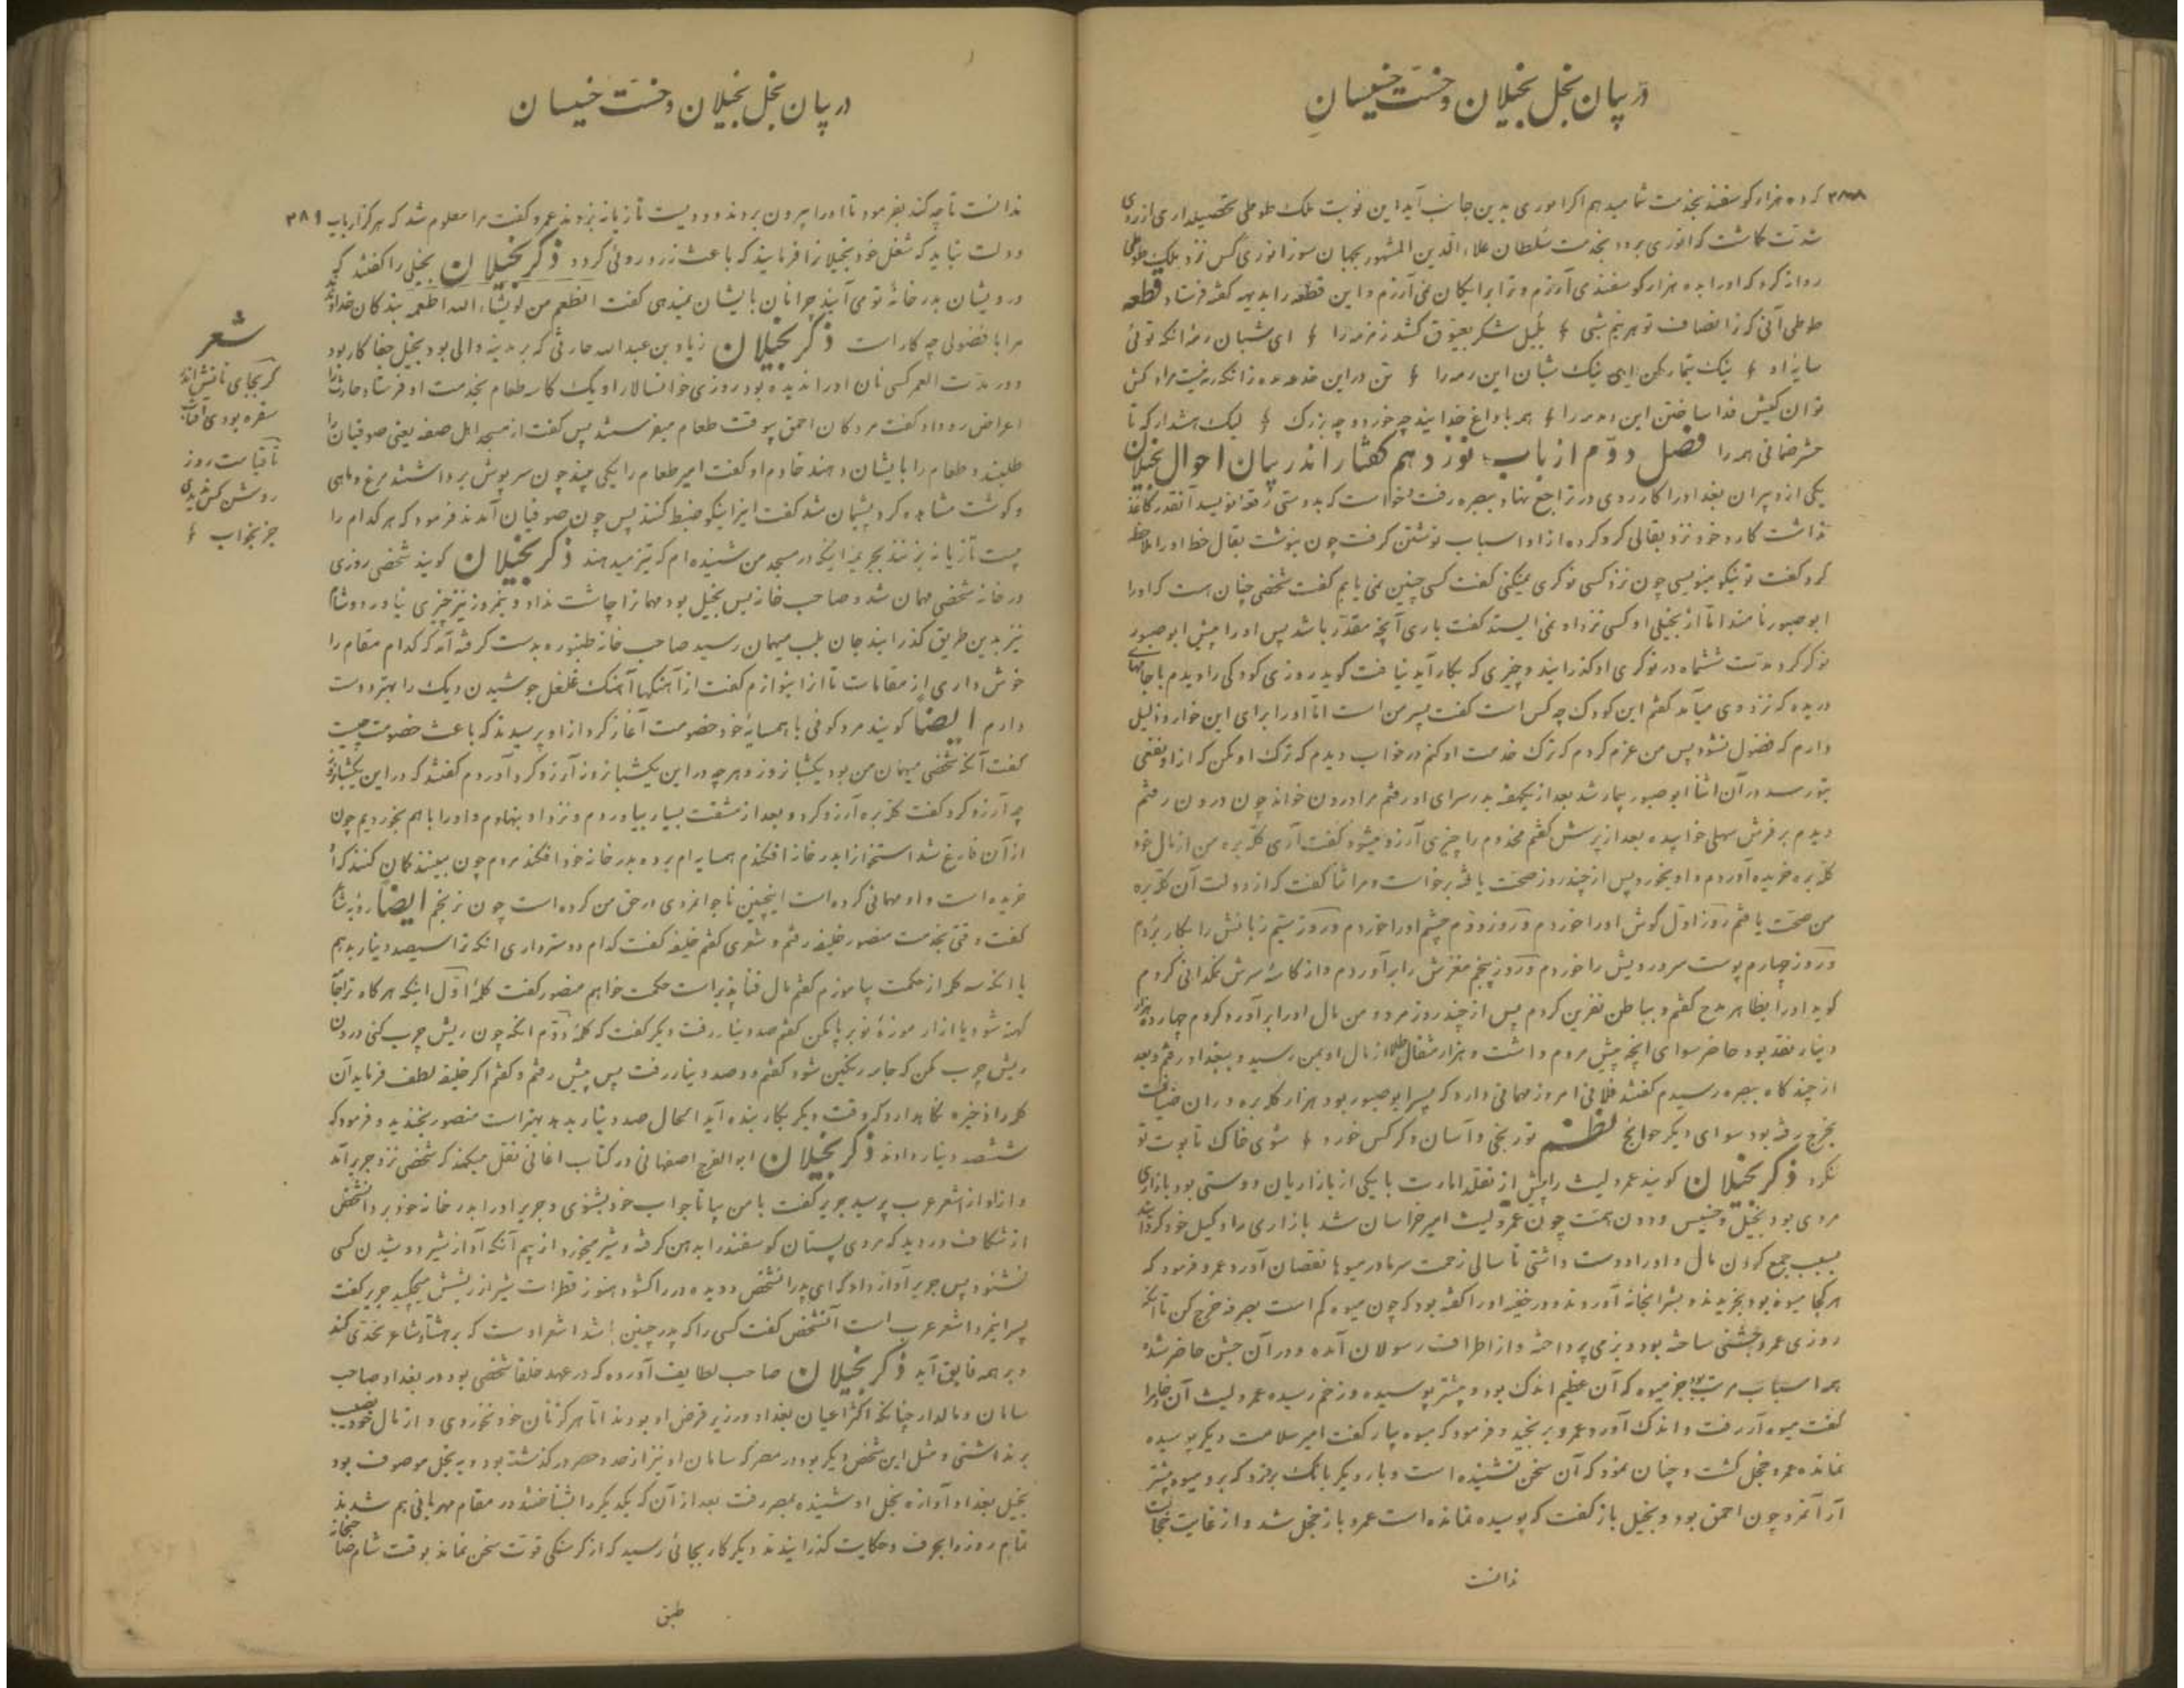 در بیان بخل بخیلان و خست خسیسان
۳۸۸ که ده هزار گوسفند بخدمت شما میدهم اگر انوری بدین جانب آید این نوبت ملک طوطی تحصیلداری از روی
شدت گماشت که انوری برود بخدمت سلطان علاء الدین المشهور بجهان سوز انوری کس نزد ملک طوطی
روانه کرد که اورا بده هزار گوسفند می آرزم و ترا برایگان نمی آرزم و این قطعه را بدیهه گفته فرستاد قطعه
طوطی آنی که ز انصاف تو هر نیم شبی بلبل شکر بعیوق کشد زمزمه را ای شبان رمه آنکه توئی
سایه او نیک تیمار کن ای نیک شبان این رمه را تن در این ز آنکه
توان کیش فدا ساختن این دمدمه را همه با داغ خدایند چه خورد و چه بزرگ لیک هشدار که تا
حشر ضمانی همه را فصل دوّم از باب نوزدهم گفتار اندر بیان احوال بخیلان
یکی از دبیران بغداد را کار روی در تراجع نهاد و ببصره رفت خواست که بدوستی رقعه نویسد آنقدر کاغذ
نداشت کارد خود نزد بقالی گرو کرده از او اسباب نوشتن گرفت چون بنوشت بقال خط اورا ملاحظه
کرد گفت تو نیکو مینویسی چون نزد کسی نوکری نمیکنی گفت کسی چنین نمی یابم گفت شخصی چنان هست که اورا
ابو صبور نامند امّا از بخیلی او کسی نزد او نمی ایستد گفت باری آنچه مقدّر باشد پس اورا پیش ابو صبور
نوکر کرد مدّت ششماه در نوکری او گذرانید و چیزی که بکار آید نیافت گوید روزی کودکی را دیدم با جامهای
دریده که نزد وی میآمد گفتم این کودک چه کس است گفت پسر من است امّا اورا برای این خوار و ذلیل
دارم که فضول نشود پس من عزم کردم که ترک خدمت او کنم در خواب دیدم که ترک او مکن که از او نفعی
بتو رسد در آن اثنا ابو صبور بیمار شد بعد از یکهفته بدر سرای او رفتم مرا درون خواند چون درون رفتم
دیدم بر فرش سهلی خوابیده بعد از پرسش گفتم مخدوم را چیزی آرزو میشود گفت آری کلّه بره من از مال خود
کلّه بره خریده آوردم و او بخورد پس از چند روز صحّت یافته برخاست و مرا ثنا گفت که از دولت آن کلّه بره
من صحّت یافتم روز اوّل گوش اورا خوردم و روز دوّم چشم اورا خوردم و روز سیّم زبانش را بکار بردم
و روز چهارم پوست سر و رویش را خوردم و روز پنجم مغزش را برآوردم و از کاسهٔ سرش نمکدانی کردم
گوید اورا بظاهر مدح گفتم و بباطن نفرین کردم پس از چند روز مرد و من مال اورا برآورد کردم چهارده هزار
دینار نقد بود حاضر سوای آنچه پیش مردم داشت و هزار مثقال طلا از مال او بمن رسید و ببغداد رفتم و بعد
از چند گاه ببصره رسیدم گفتند فلانی امروز مهمانی دارد که پسر ابو صبور بود هزار کلّه بره در آن ضیافت
بخرج رفته بود سوای دیگر حوایج نظم تو رنجی و آسان دگر کس خورد سوی خاک تابوت تو
نگرد ذکر بخیلان گویند عمرو لیث را پیش از تقلّد امارت با یکی از بازاریان دوستی بود بازاری
مردی بود بخیل و خسیس و دون همّت چون عمرو لیث امیر خراسان شد بازاری را وکیل خود گردانید
بسبب جمع کردن مال و اورا دوست داشتی تا سالی زحمت سرما در میوها نقصان آورد عمرو فرمود که
هر کجا میوه بود بخریدند و بشرابخانه آوردند و در خفیه اورا گفته بود که چون میوه کم است بصرفه خرج کن تا آنکه
روزی عمرو جشنی ساخته بود و بزمی پرداخته و از اطراف رسولان آمده و در آن جشن حاضر شده
همه اسباب مرتّب بود بجز میوه که آن عظیم اندک بود و بیشتر پوسیده و زخم رسیده عمرو لیث آن
گفت میوه آر رفت و اندک آورد عمرو برنجید و فرمود که میوه بیار گفت امیر سلامت دیگر پوسیده
نمانده عمرو خجل گشت و چنان نمود که آن سخن نشنیده است و بار دیگر بانگ بر زد که برو میوه بیشتر
آر آنمرد چون احمق بود و بخیل باز گفت که پوسیده نمانده است عمرو باز خجل شد و از غایت خجالت
ندانست
در بیان بخل بخیلان و خست خسیسان
ندانست تا چه کند بفرمود تا اورا بیرون بردند و دویست تازیانه بزدند عمرو گفت مرا معلوم شد که هرگز ارباب ۳۸۹
دولت نباید که شغل خود بخیلانرا فرمایند که باعث زرد روئی گردد ذکر بخیلان بخیلی را گفتند که
درویشان بدر خانهٔ تو می آیند چرا نان بایشان نمیدهی گفت انطعم من لو یشاء الله اطعمه بندگان خداوند
مرا با فضولی چه کار است ذکر بخیلان زیاد بن عبدالله حارثی که بر مدینه والی بود بخیل جفا کار بود
و در مدّت العمر کسی نان اورا ندیده بود روزی خوانسالار او یک کاسه طعام بخدمت او فرستاد حارث را
اعراض رو داد گفت مردکان احمق بیوقت طعام میفرستند پس گفت از مسجد اهل صفه یعنی صوفیان را
طلبند و طعام را بایشان دهند خادم او گفت امیر طعام را یکی بیند چون سرپوش برداشتند مرغ و ماهی
و گوشت مشاهده کرد پشیمان شد گفت اینرا نیکو ضبط کنند پس چون صوفیان آمدند فرمود که هر کدام را
بیست تازیانه بزنند بجریمه اینکه در مسجد من شنیده ام که تیز میدهند ذکر بخیلان گویند شخصی روزی
در خانه شخصی مهمان شد و صاحب خانه بس بخیل بود مهمانرا چاشت نداد و نیمروز نیز چیزی نیاورد و شام
نیز بدین طریق گذرانید جان بلب میهمان رسید صاحب خانه طنبوره بدست گرفته آمد که کدام مقام را
خوش داری از مقامات تا آنرا بنوازم گفت از آهنگها آهنگ غلغل جوشیدن دیک را بهتر دوست
دارم ایضاً گویند مرد کوفی با همسایهٔ خود خصومت آغاز کرد از او پرسیدند که باعث خصومت چیست
گفت آنکه شخصی میهمان من بود یکشبانروز و هر چه در این یکشبانروز آرزو کرد آوردم گفتند که در این یکشبانروز
چه آرزو کرد گفت کلّه بره آرزو کرد و بعد از مشقّت بسیار بیاوردم و نزد او بنهادم و اورا با هم بخوردیم چون
از آن فارغ شد استخوانرا بدر خانه افکندم همسایه ام برده بدر خانه خود افکند مردم چون ببینند گمان کنند که او
خریده است و او مهمانی کرده است اینچنین ناجوانمردی در حق من کرده است چون نرنجم ایضاً
گفت وقتی بخدمت منصور خلیفه رفتم و شعری گفتم خلیفه گفت کدام دوستر داری آنکه ترا سیصد دینار بدهم
یا آنکه سه کلمه از حکمت بیاموزم گفتم مال فنا پذیر است حکمت خواهم منصور گفت کلمهٔ اوّل اینکه هرگاه ترا جامه
کهنه شود با ازار موزهٔ نو بر پا مکن گفتم صد دینار رفت دیگر گفت که کلمهٔ دوّم آنکه چون ریش چرب کنی درون
ریش چرب مکن که جامه رنگین شود گفتم دوصد دینار رفت پس پیش رفتم و گفتم اگر خلیفه لطف فرماید آن
کلمه را ذخیره نگاهدارد که وقت دیگر بکار بنده آید الحال صد دینار بدهد بهتر است منصور بخندید و فرمود که
ششصد دینار دادند ذکر بخیلان ابو الفرج اصفهانی در کتاب اغانی نقل میکند که شخصی نزد جریر آمد
و از او از اشعر عرب پرسید جریر گفت با من بیا تا جواب خود بشنوی و جریر اورا بدر خانه خود برد آنشخص
از شکاف در دید که مردی پستان گوسفند را بدهن گرفته و شیر میخورد از بیم آنکه آواز شیر دوشیدن کسی
نشنود پس جریر آواز داد که ای پدر آنشخص دویده در را گشود هنوز قطرات شیر از ریشش میچکید جریر گفت
پسر اینمرد اشعر عرب است آنشخص گفت کسی را که پدر چنین باشد اشعر اوست که بر هشتاد شاعر تحدّی کند
و بر همه فایق آید ذکر بخیلان صاحب لطایف آورده که در عهد خلفا شخصی بود در بغداد صاحب
سامان و مالدار چنانکه اکثر اعیان بغداد در زیر قرض او بودند امّا هرگز نان خود نخوردی و از مال خود نصیب
برنداشتی و مثل این شخص دیگر بود در مصر که سامان او نیز از حد و حصر درگذشته بود و به بخل موصوف بود
بخیل بغداد آوازه بخل او شنیده بمصر رفت بعد از آن که یکدیگر را بشناختند در مقام مهربانی هم شدند
تمام روز را بحرف و حکایت گذرانیدند دیگر کار بجائی رسید که از گرسنگی قوّت سخن نماند بوقت شام صاحبخانه
طبق
شعر
گر بجای نانش اندر
سفره بودی آفتاب
تا قیامت روز
روشن کس ندیدی
جز بخواب